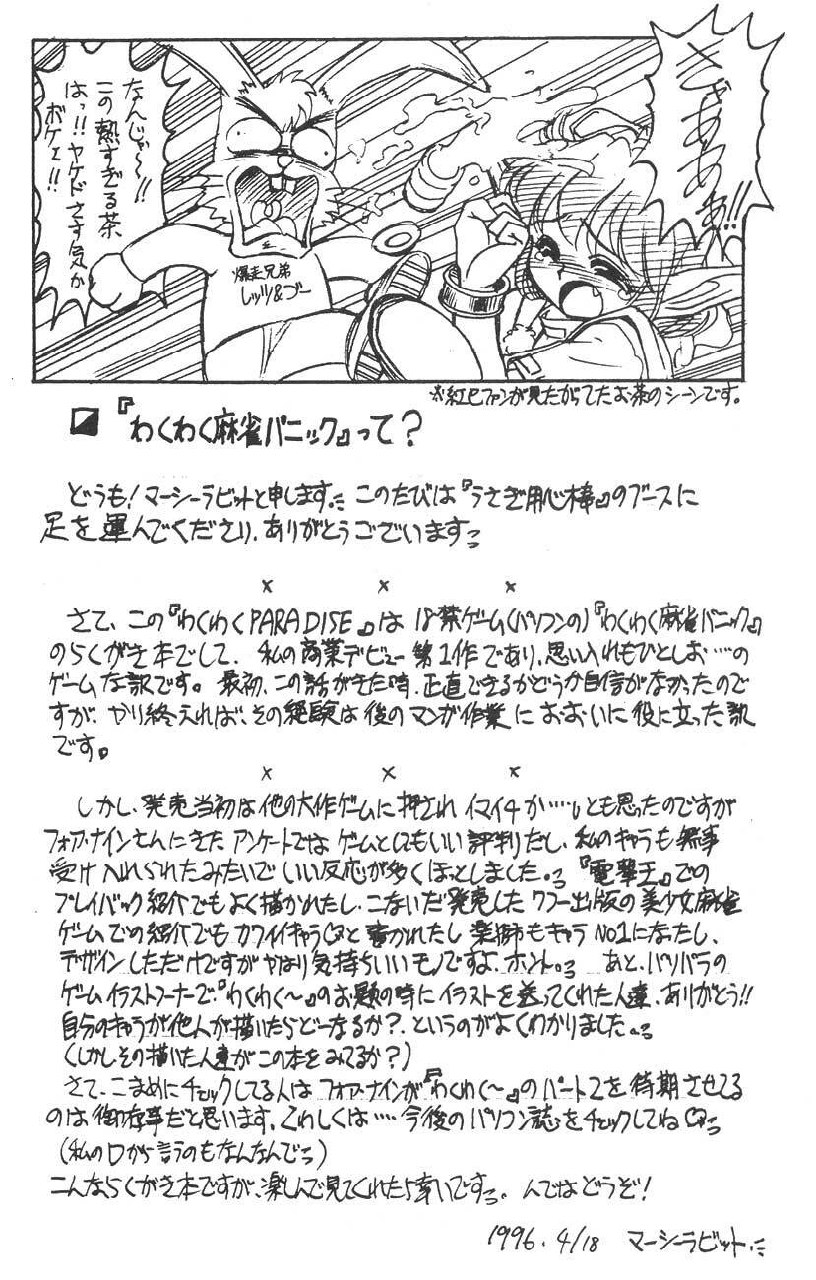 ぎゃあああぁ!!
なんじゃ〜!!
この熱すぎる茶
はっ!!ヤケドさす気か
ボケェ!!
爆走兄弟
レッツ&ゴー
※紅七ファンが見たがってたお茶のシーンです。
『わくわく麻雀パニック』って?
どうも!マーシーラビットと申します。このたびは『うさぎ用心棒』のブースに
足を運んでくださり、ありがとうございます
× × ×
さて、この『わくわくPARADISE』は18禁ゲーム(パソコンの)『わくわく麻雀パニック』
のらくがき本でして、私の商業デビュー第1作であり、思い入れもひとしお…の
ゲームな訳です。最初、この話がきた時、正直できるかどうか自信がなかったので
すが、やり終えれば、その経験は後のマンガ作業におおいに役に立った訳
です。
× × ×
しかし、発売当初は他の大作ゲームに押されイマイチか……とも思ったのですが
フォア・ナインさんにきたアンケートではゲームとしてもいい評判だし、私のキャラも無事
受け入れられたみたいでいい反応が多くほっとしました。『電撃王』での
プレイバック紹介でもよく描かれたし、こないだ発売したワニー出版の美少女麻雀
ゲームでの紹介でもカワイイキャラ♡と書かれたし 楽姉もキャラNo1になったし、
デザインしただけですがやはり気持ちいいモノですよ、ホント。あと、パソパラの
ゲームイラストコーナーで『わくわく〜』のお題の時にイラストを送ってくれた人達、ありがとう!!
自分のキャラが他人が描いたらどーなるか?というのがよくわかりました。
(しかしその描いた人達がこの本をみてるか?)
さて、こまめにチェックしてる人はフォア・ナインが『わくわく〜』のパート2を待期させてる
のは御存事だと思います。くわしくは…今後のパソコン誌をチェックしてね♡
(私の口から言うのもなんなんで)
こんならくがき本ですが、楽しんで見てくれたら幸いです。んではどうぞ!
1996.4/18 マーシーラビット